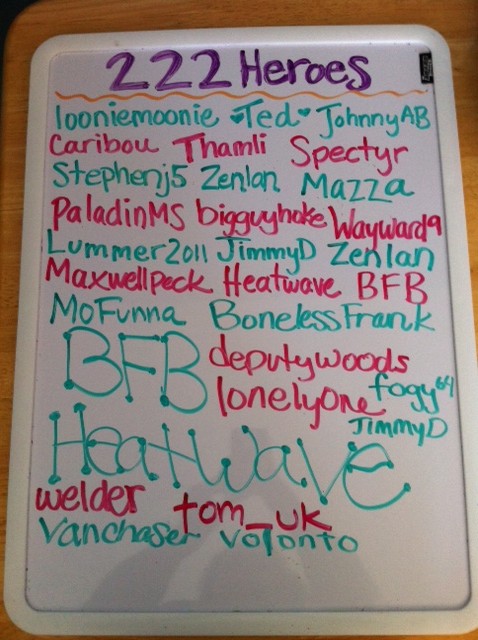 222 Heroes
looniemoonie ♥Ted♥ JohnnyAB
Caribou Thamli Spectyr
Stephenj5 Zenlan Mazza
PaladinMS bigguyhoke Wayward9
Lummer2011 JimmyD Zenlan
Maxwellpeck Heatwave BFB
MoFunna BonelessFrank
BFB deputywoods
lonelyone fogy64
JimmyD
HeatWave
welder tom_uk
Vanchaser Votonto